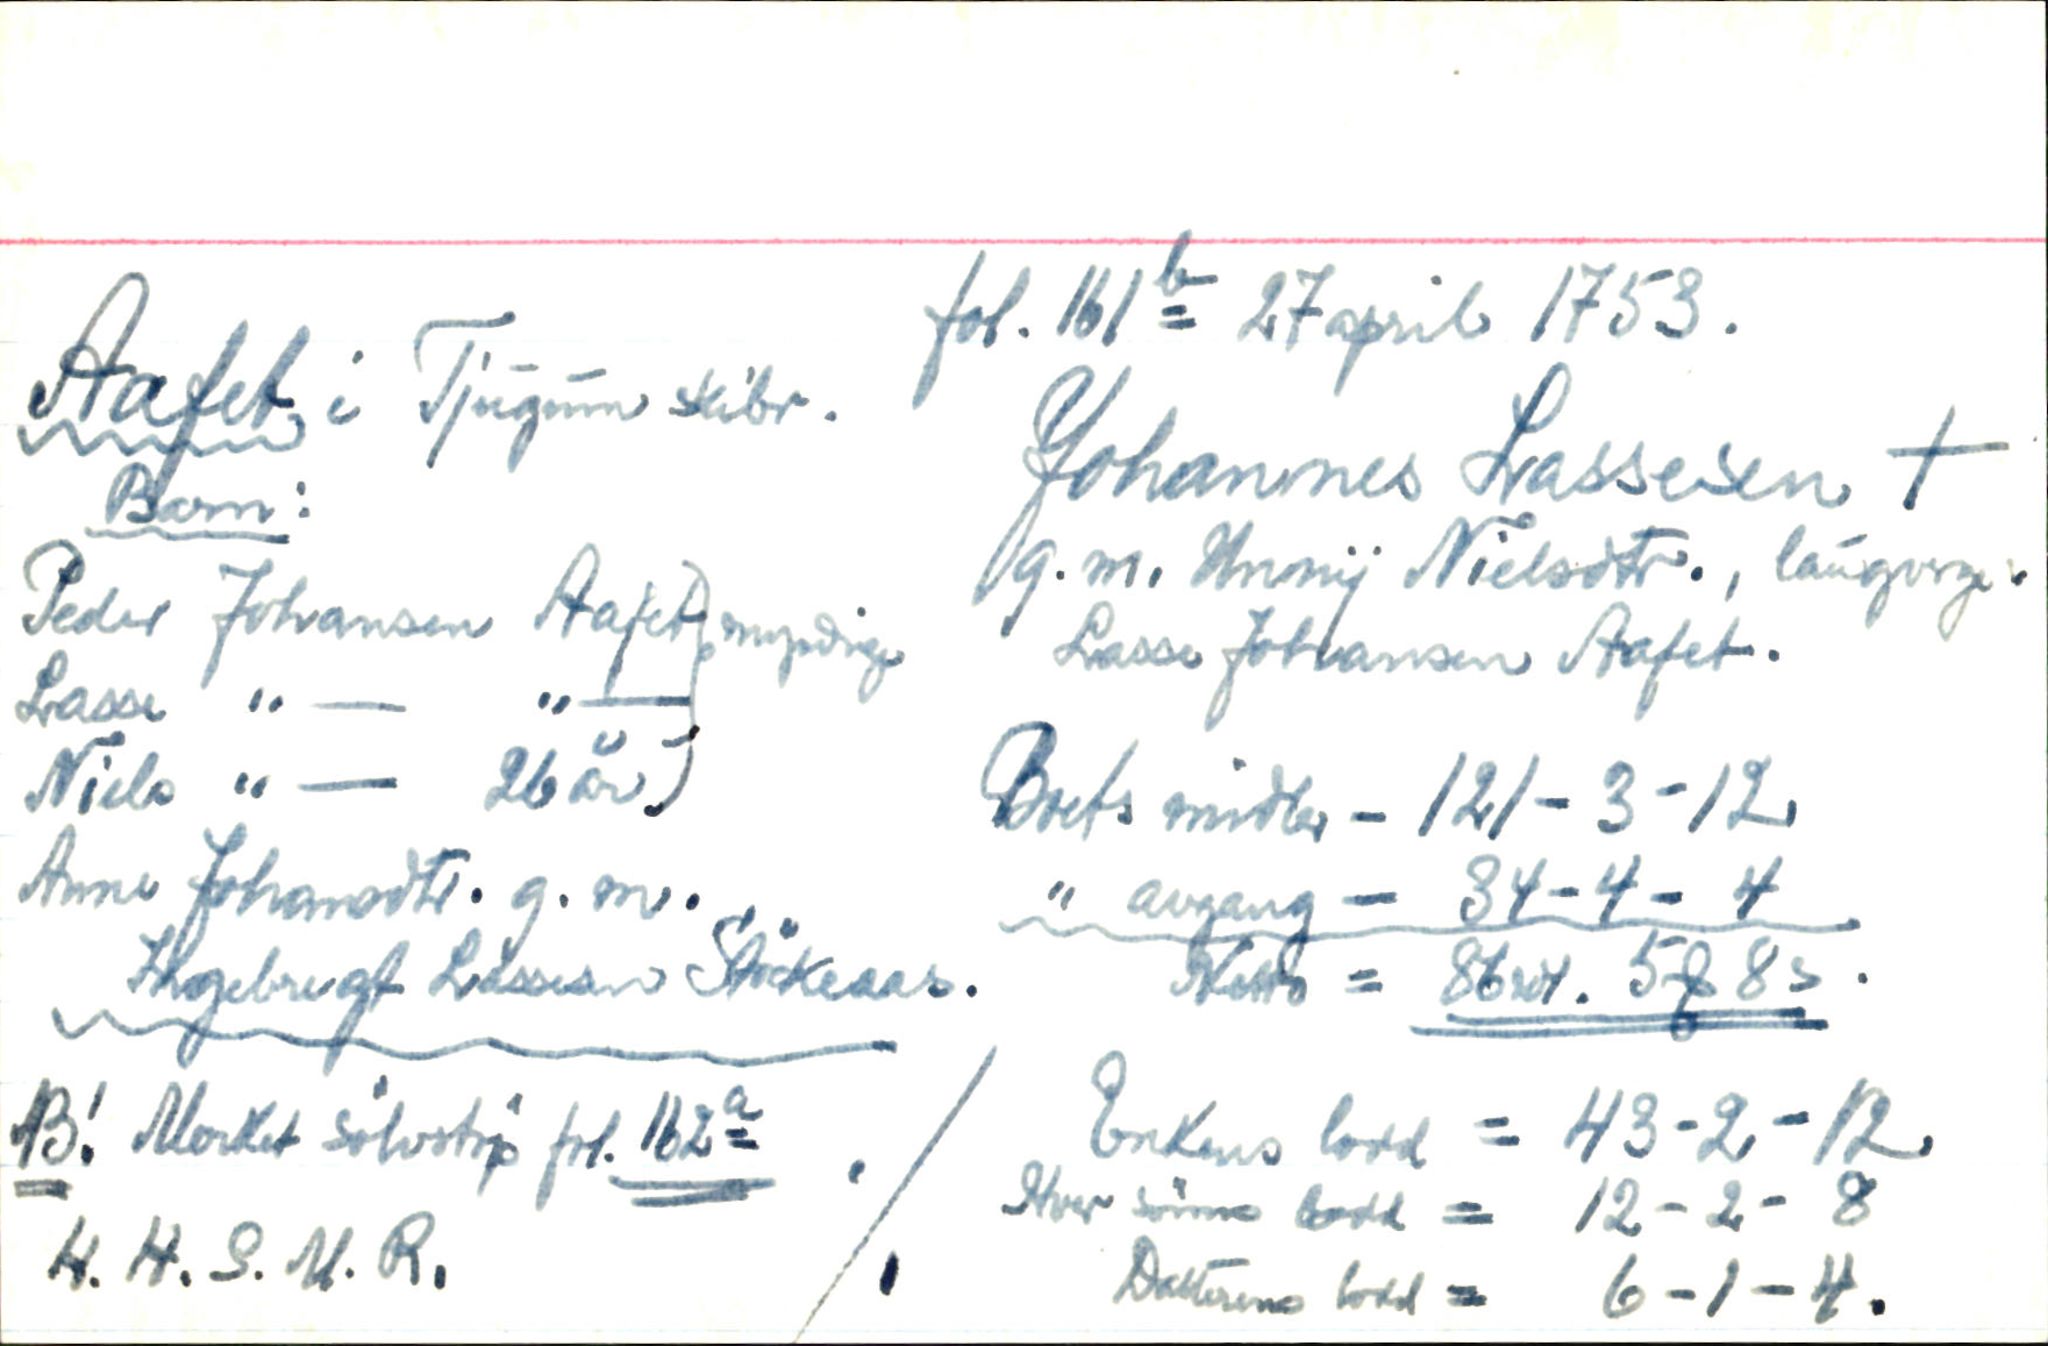 fol. 161 b 27 april 1753.
Aafet i Tjugum skibr.
Johannes Lassesen †
g. m. Unnij Nielsdtr., laugverge
Lasse Johansen Aafet.
Barn:
Peder Johansen Aafet, myndige
Lasse " — " —
Niels " — 26 år
Anne Johansdtr. g. m.
Ingebrigt Lassesen Stöckeaas.
Boets midler - 121 - 3 - 12
" avgang - 34 - 4 - 4
Netto = 86 rd. 5 ℳ 8 s.
NB! Merket sölvstöp fol. 162 a
H. H. S. M. R.
Enkens lodd = 43 - 2 - 12
Hver sönns lodd = 12 - 2 - 8
Datterens lodd = 6 - 1 - 4.